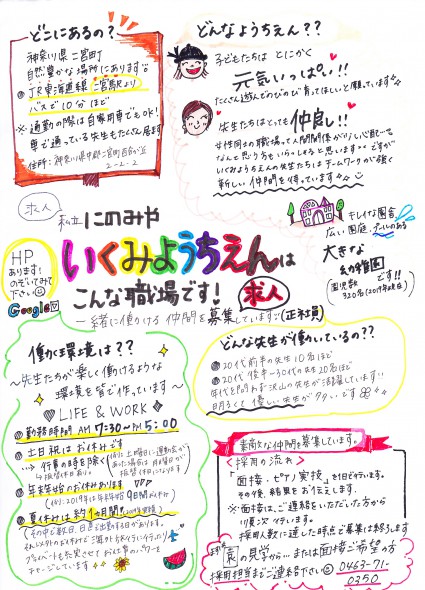 どこにあるの？
神奈川県 二宮町
自然豊かな場所にあります。
JR東海道線 二宮駅より
バスで10分ほど
※通勤の際は自家用車でもOK!
車で通っている先生もたくさん居ます
住所：神奈川県中郡二宮町百合が丘
2-2-2
どんなようちえん？？
子どもたちは とにかく
元気いっぱい!!
たくさん遊んでのびのび育ってほしいと願しています
先生たちはとっても仲良し!!
女性同士の職場って人間関係が
なんて思う方もいらっしゃると思います ですが
いくみようちえんの先生たちはチームワークが強く
新しい仲間を待っています
求人
私立 にのみや
いくみようちえんは
こんな職場です!
求人
一緒に働ける 仲間を募集しています(正社員)
HP
あります!
のぞいてみて
下さい
Google
キレイな園舎
広い園庭 プールのある
大きな
幼稚園
です!!
園児数
320名(2019年現在)
働く環境は？？
～先生たちが楽しく働けるような
環境を皆で作っています～
LIFE & WORK
勤務時間 AM 7:30～PM 5:00
土日祝はお休みです
→行事の時を除く
(例)土曜日に運動会が
あった場合は月曜日が
振替休日になります
年末年始のお休みあります
(例)2019年は年末年始9日間お休み
夏休みは約1ヶ月間!
プライベートも充実させてお仕事のパワーを
チャージしています
どんな先生が働いているの？？
20代前半の先生10名ほど
20代後半～30代の先生20名ほど
年代を問わず沢山の先生が活躍しています
明るくて優しい先生がタタいです
素敵な仲間を募集しています。
<採用の流れ>
「面接・ピアノ実技」を1日で行います。
その後、結果をお伝えします。
※面接は、ご連絡をいただいた方から
順次行っています。
採用人数に達した時点で募集は終了します
園の見学から…または面接ご希望の方
採用担当までご連絡下さい 0463-71-
0350